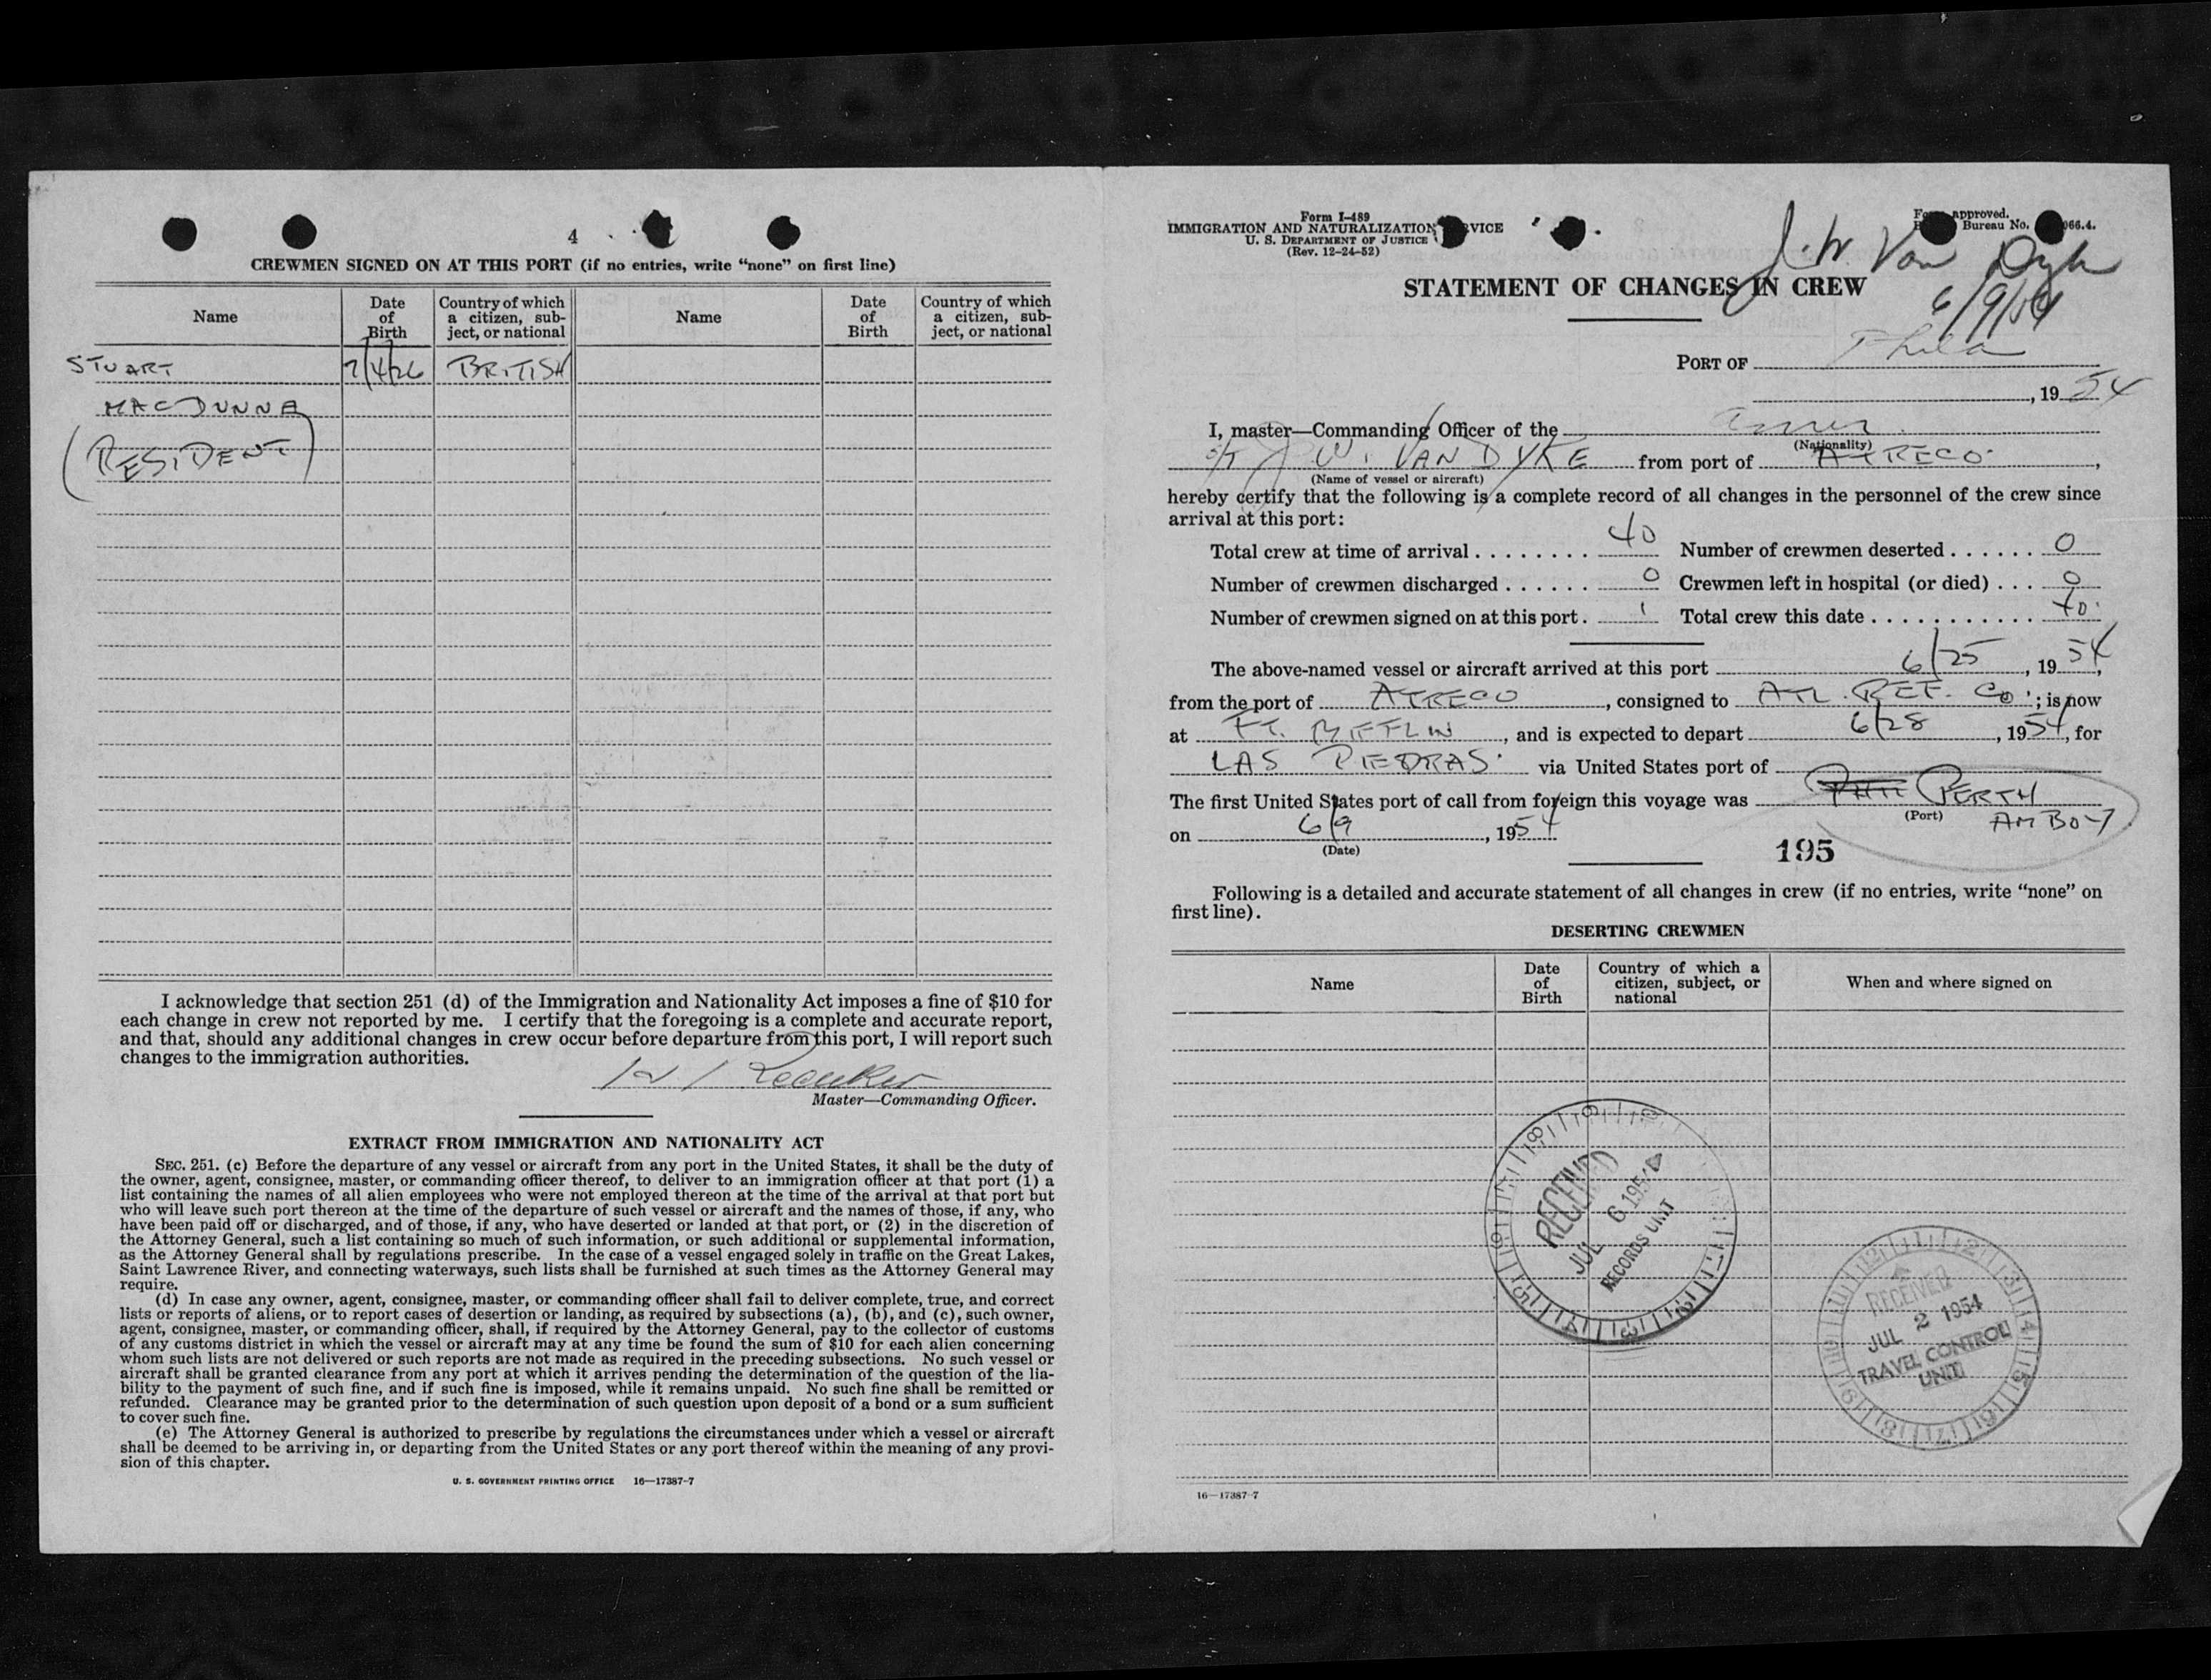 4
CREWMEN SIGNED ON AT THIS PORT (if no entries, write “none” on first line)
Name
Date of Birth
Country of which a citizen, subject, or national
Name
Date of Birth
Country of which a citizen, subject, or national
STUART 7/4/26 BRITISH
(RESIDENT)
I acknowledge that section 251 (d) of the Immigration and Nationality Act imposes a fine of $10 for
each change in crew not reported by me. I certify that the foregoing is a complete and accurate report,
and that, should any additional changes in crew occur before departure from this port, I will report such
changes to the immigration authorities.
Master—Commanding Officer.
EXTRACT FROM IMMIGRATION AND NATIONALITY ACT
SEC. 251. (c) Before the departure of any vessel or aircraft from any port in the United States, it shall be the duty of
the owner, agent, consignee, master, or commanding officer thereof, to deliver to an immigration officer at that port (1) a
list containing the names of all alien employees who were not employed thereon at the time of the arrival at that port but
who will leave such port thereon at the time of the departure of such vessel or aircraft and the names of those, if any, who
have been paid off or discharged, and of those, if any, who have deserted or landed at that port, or (2) in the discretion of
the Attorney General, such a list containing so much of such information, or such additional or supplemental information,
as the Attorney General shall by regulations prescribe. In the case of a vessel engaged solely in traffic on the Great Lakes,
Saint Lawrence River, and connecting waterways, such lists shall be furnished at such times as the Attorney General may
require.
(d) In case any owner, agent, consignee, master, or commanding officer shall fail to deliver complete, true, and correct
lists or reports of aliens, or to report cases of desertion or landing, as required by subsections (a), (b), and (c), such owner,
agent, consignee, master, or commanding officer, shall, if required by the Attorney General, pay to the collector of customs
of any customs district in which the vessel or aircraft may at any time be found the sum of $10 for each alien concerning
whom such lists are not delivered or such reports are not made as required in the preceding subsections. No such vessel or
aircraft shall be granted clearance from any port at which it arrives pending the determination of the question of the lia-
bility to the payment of such fine, and if such fine is imposed, while it remains unpaid. No such fine shall be remitted or
refunded. Clearance may be granted prior to the determination of such question upon deposit of a bond or a sum sufficient
to cover such fine.
(e) The Attorney General is authorized to prescribe by regulations the circumstances under which a vessel or aircraft
shall be deemed to be arriving in, or departing from the United States or any port thereof within the meaning of any provi-
sion of this chapter.
U. S. GOVERNMENT PRINTING OFFICE 16—17387-7
Form I-489
IMMIGRATION AND NATURALIZATION
U. S. DEPARTMENT OF JUSTICE
(Rev. 12-24-52)
approved.
Bureau No. 66.4.
J. W. Van Dyke
6/9/54
STATEMENT OF CHANGES IN CREW
PORT OF Phila
, 19 54
I, master—Commanding Officer of the
(Nationality)
W. VAN DYKE from port of ATRECO.,
(Name of vessel or aircraft)
hereby certify that the following is a complete record of all changes in the personnel of the crew since
arrival at this port:
Total crew at time of arrival 40 Number of crewmen deserted 0
Number of crewmen discharged 0 Crewmen left in hospital (or died) 0
Number of crewmen signed on at this port. 1 Total crew this date 40.
The above-named vessel or aircraft arrived at this port 6/25, 19 54,
from the port of ATRECO, consigned to ATL. REF. Co.; is now
at FT. MIFFLIN, and is expected to depart 6/28, 1954, for
LAS PIEDRAS. via United States port of
The first United States port of call from foreign this voyage was PERTH AMBOY
(Port)
on 6/9, 1954
(Date)
195
Following is a detailed and accurate statement of all changes in crew (if no entries, write “none” on
first line).
DESERTING CREWMEN
Name
Date of Birth
Country of which a citizen, subject, or national
When and where signed on
RECEIVED
JUL 6 1954
RECORDS UNIT
RECEIVED
JUL 2 1954
TRAVEL CONTROL
UNIT
16—17387-7